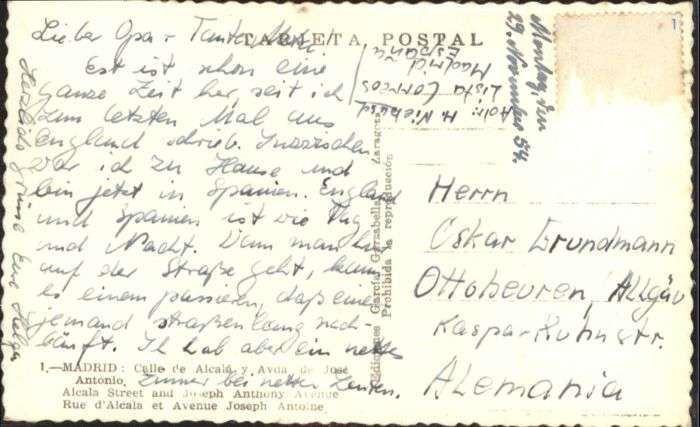 TARJETA POSTAL
Lieber Opa + Tante
Est ist schon eine
ganze Zeit her, seit ich
zum letzten Mal aus
England schrieb. Inzwischen
war ich zu Hause und
bin jetzt in Spanien. England
und Spanien ist wie Tag
und Nacht. Wenn man hier
auf der Straße geht, kann
es einem passieren, daß einem
jemand straßenlang nach-
läuft. Ich hab aber ein nettes
Zimmer bei netten Leuten.
Herzliche Grüsse Eure Helga
Montag, den
29. November 54.
Adr: H.
Lista Correos
Madrid
España
Herrn
Oskar Grundmann
Ottobeuren, Allgäu
Kaspar-Kuhnstr.
Alemania
Ediciones García Garrabella Zaragoza
Prohibida la reproducción
1.—MADRID: Calle de Alcalá y Avda. de José
Antonio.
Alcala Street and Joseph Anthony Avenue
Rue d'Alcala et Avenue Joseph Antoine